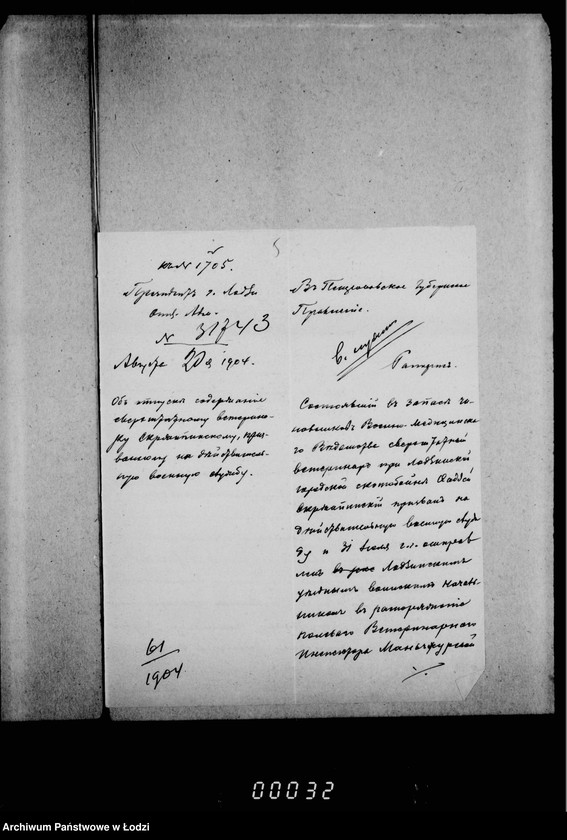 къ № 1705.
Президентъ г. Лодзи
Отд. Адм.
№ 31743
Августа 20 д. 1904.
Объ отпускѣ содержанія
сверхштатному ветерина-
ру Скржайпинскому, приз-
ванному на дѣйствитель-
ную военную службу.
61
1904
Въ Петроковское Губернское
Правленіе.
Рапортъ.
Состоявшій въ запасѣ чи-
новниковъ Военно-Медицинска-
го Вѣдомства сверхштатный
ветеринаръ при Лодзинской
городской скотобойнѣ Ѳаддей
призванъ на
дѣйствительную военную служ-
бу и 31 Іюля с.г. отправ-
ленъ Лодзинскимъ
уѣзднымъ воинскимъ началь-
никомъ въ распоряженіе
полевого Ветеринарнаго
Инспектора Маньчжурской
00032
Archiwum Państwowe w Łodzi